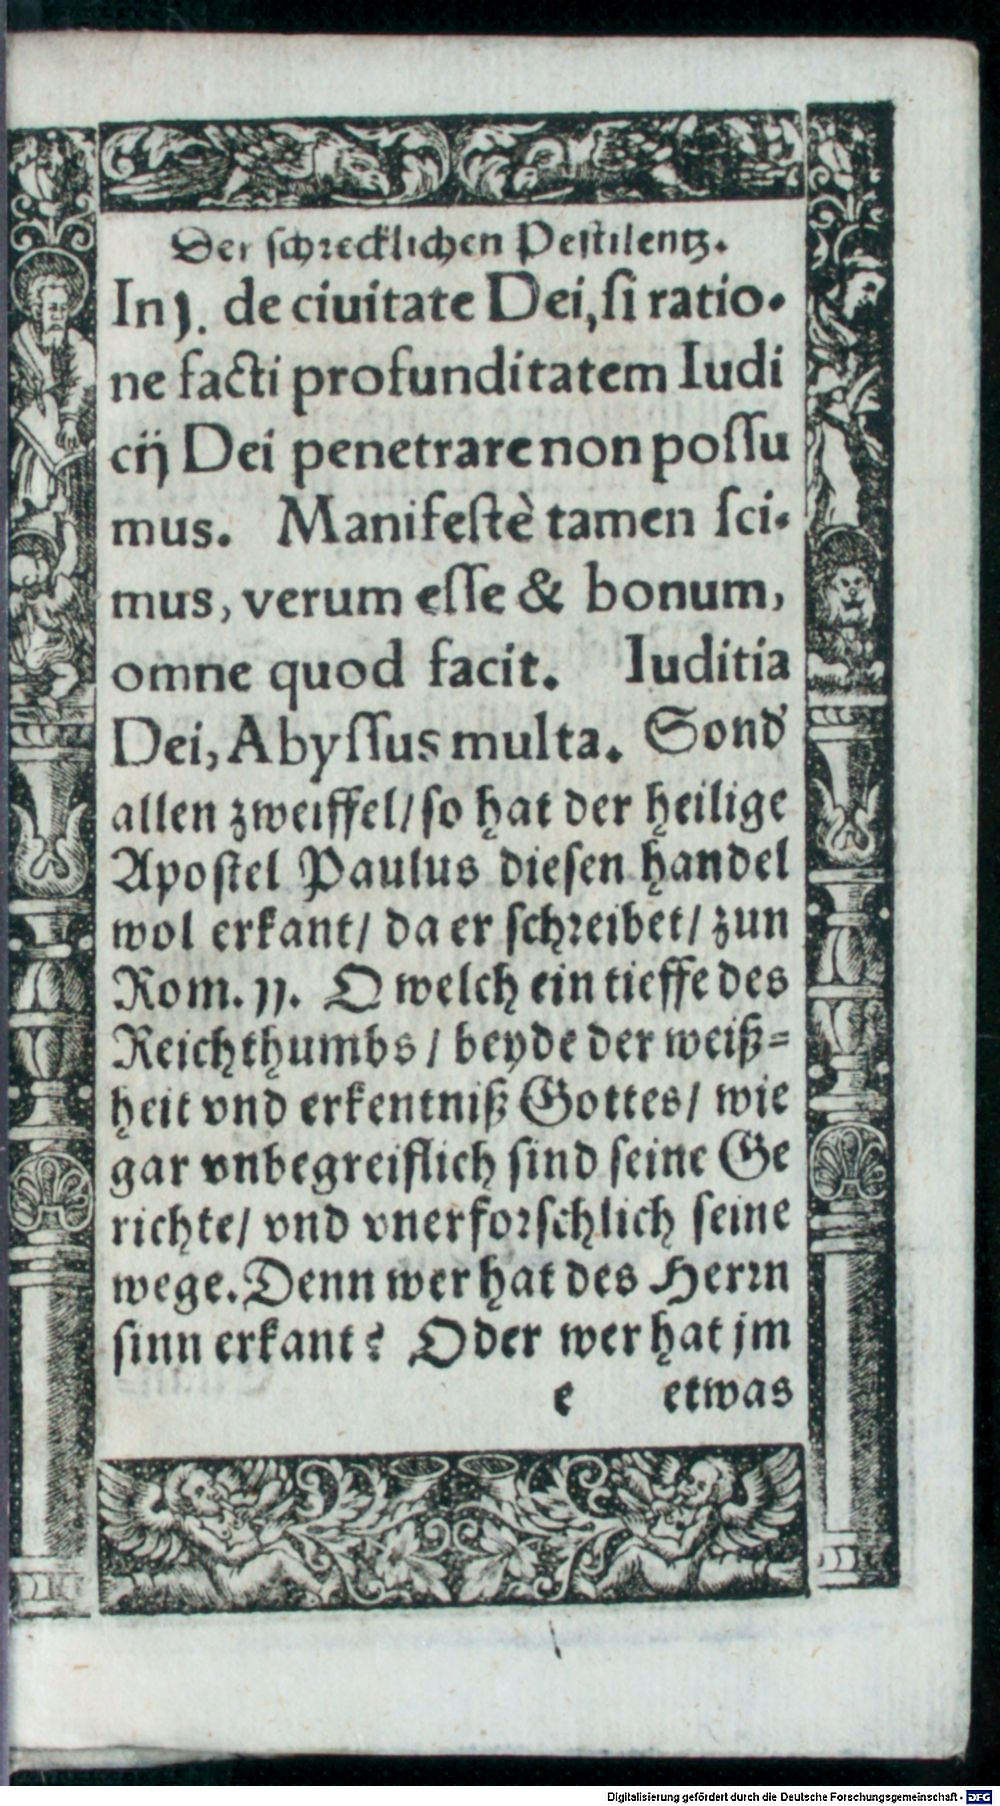 Der schrecklichen Pestilentz.
In j. de ciuitate Dei, ſi ratio-
ne facti profunditatem Iudi
cij Dei penetrare non poſſu
mus. Manifeſtè tamen ſci-
mus, verum eſſe & bonum,
omne quod facit. Iuditia
Dei, Abyſſus multa. Sond'
allen zweiffel/ ſo hat der heilige
Apoſtel Paulus dieſen handel
wol erkant/ da er ſchreibet/ zun
Rom. jj. O welch ein tieffe des
Reichthumbs/ beyde der weiß=
heit vnd erkentniß Gottes/ wie
gar vnbegreiflich ſind ſeine Ge
richte/ vnd vnerforſchlich ſeine
wege. Denn wer hat des Herrn
ſinn erkant? Oder wer hat jm
e etwas
Digitalisierung gefördert durch die Deutsche Forschungsgemeinschaft - DFG